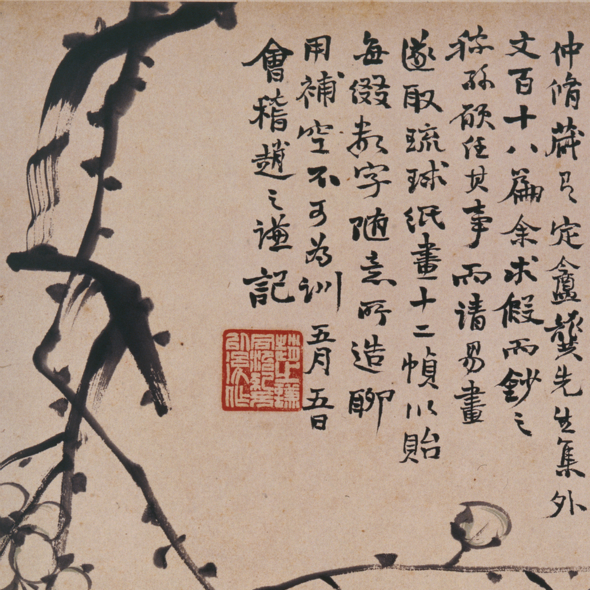 仲脩藏有定盦龔先生集外
文百十八篇余求假而鈔之
稼孫願任其事而請易畫
遂取琉球紙畫十二幀以貽
每綴數字隨意所造聊
用補空不可為訓 五月五日
會稽趙之謙記